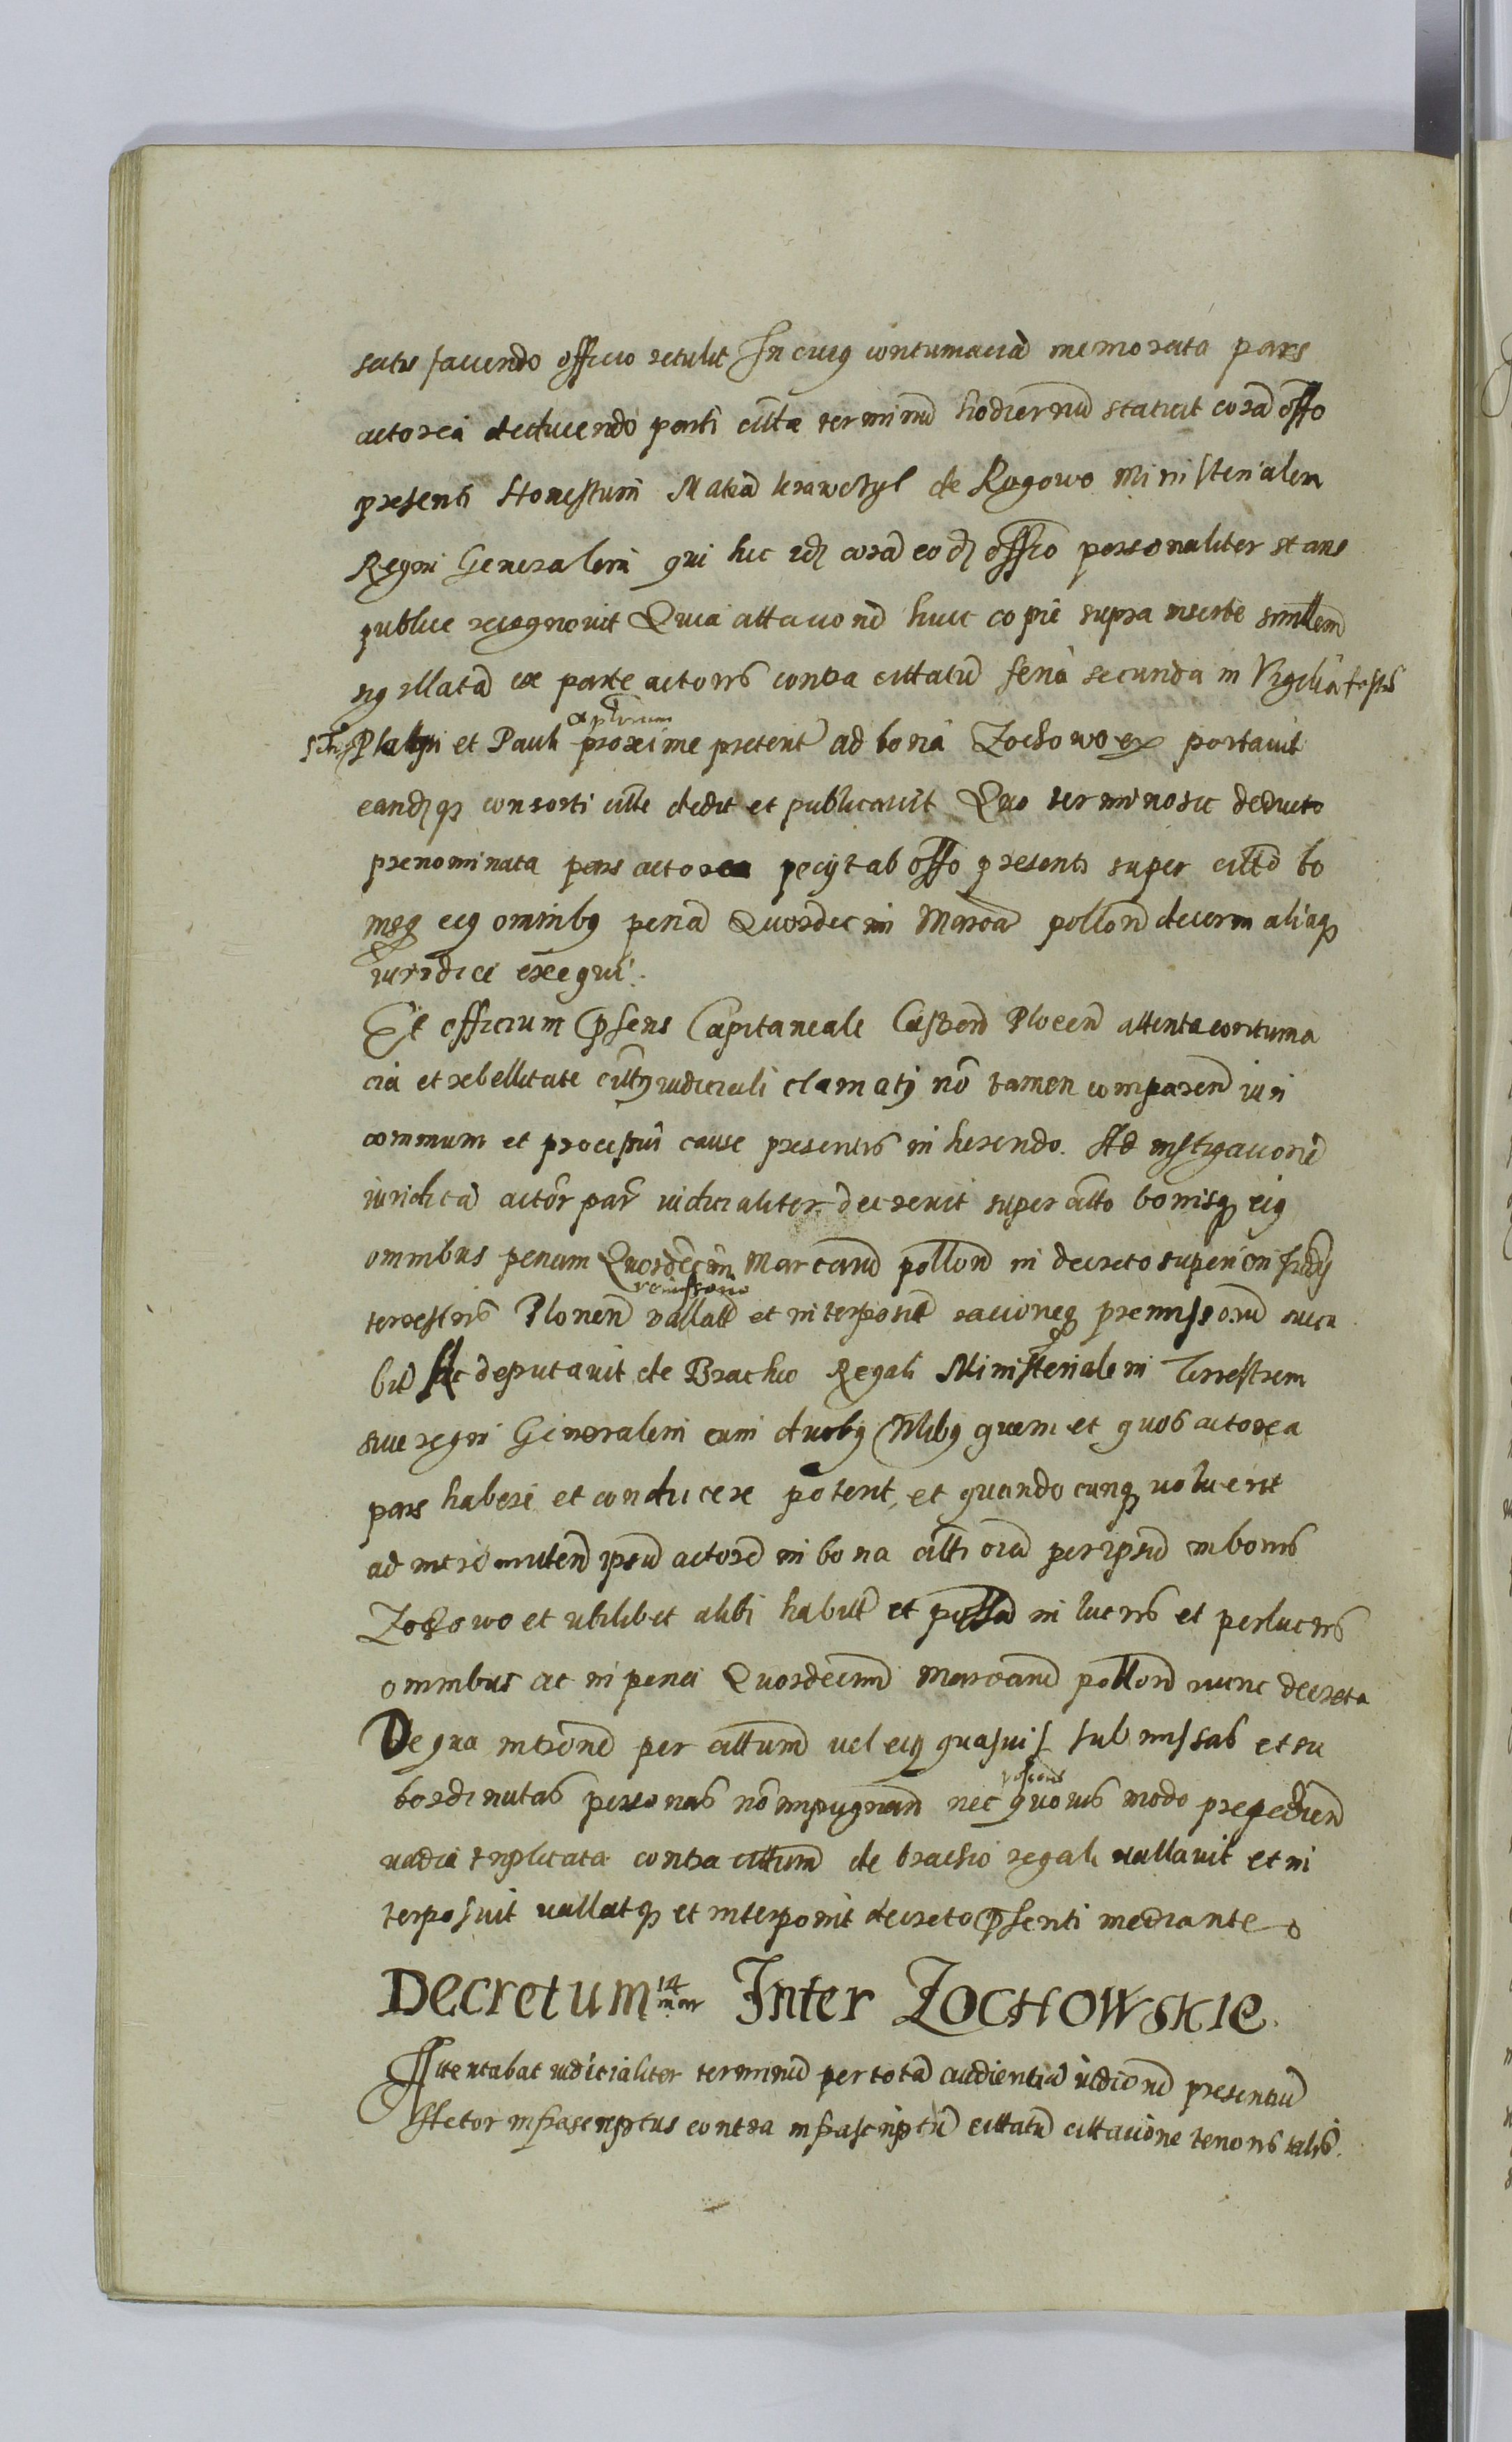 satis faciendo officio retulit In cuiq contumaciã memorata pars
actorea deducendo parti cittae terminũ hodiernũ statuit corã offo
presenti Honestum Matiã krawczyk de Rogowo Ministerialem
Regni Generalem qui hic idẽ corã eodẽ offcio personaliter stans
publice recognovit Quia attacionẽ huic copie supra inserte similem
sigillatã ex parte actoris contra cittatũ feria secunda in Vigilia festi
Petri et Pauli aplorum proxime preterit ad bona Zochowo exportavit
eandẽq consorti citte dedit et publicavit Quo termino sic deducto
prenominata pars actorea peciit ab offo presenti super citto bo
nisq eiq omnibq penã Quordecim Marcã pollonĩ decerni aliaq
iuridice exequi.
Et officium psens Capitaneale Castren Plocen attenta contuma
cia et rebellitate citti iudiciali clamati nõ tamen comparen iuri
communi et processui cause presentis inherendo. Ad instigacionẽ
iuridicã actor par iudicialiter decrevit super citto bonisq eiq
omnibus penam Quordecim Marcarũ pollonĩ in decreto superiori Judy
terrestris Plonen remissorio vallatã et interpositã racioneq premissorũ succu
bit Ac deputavit de Brachio Regali Ministerialem Terrestrem
sive regni Generalem cum duobq Nlibq quem et quos actorea
pars habere et conducere poterit, et quandocunq voluerit
ad intromitten ipsũ actorẽ in bona citti oĩa per ipsũ in bonis
Zochowo et ubilibet alibi habitã et possã in lucris et perlucris
omnibus ac in pena Quordecim Marcarũ pollonĩ nunc decreta
De qua intronẽ per cittum vel eiq quasvis submissas et su
bordinatas personas nõ impugnan nec quovis modo prepedien
vadia triplicata contra cittum de brachio regali vallavit et in
terposuit vallatq et interponit decreto psenti mediante
Decretum 14 mar Inter ZOCHOWSKIE.
Attentabat iudicialiter terminũ per totã audientiã iudicionũ presentiũ
Actor infrascriptus contra infrascriptũ cittatũ cittacione tenoris talis.